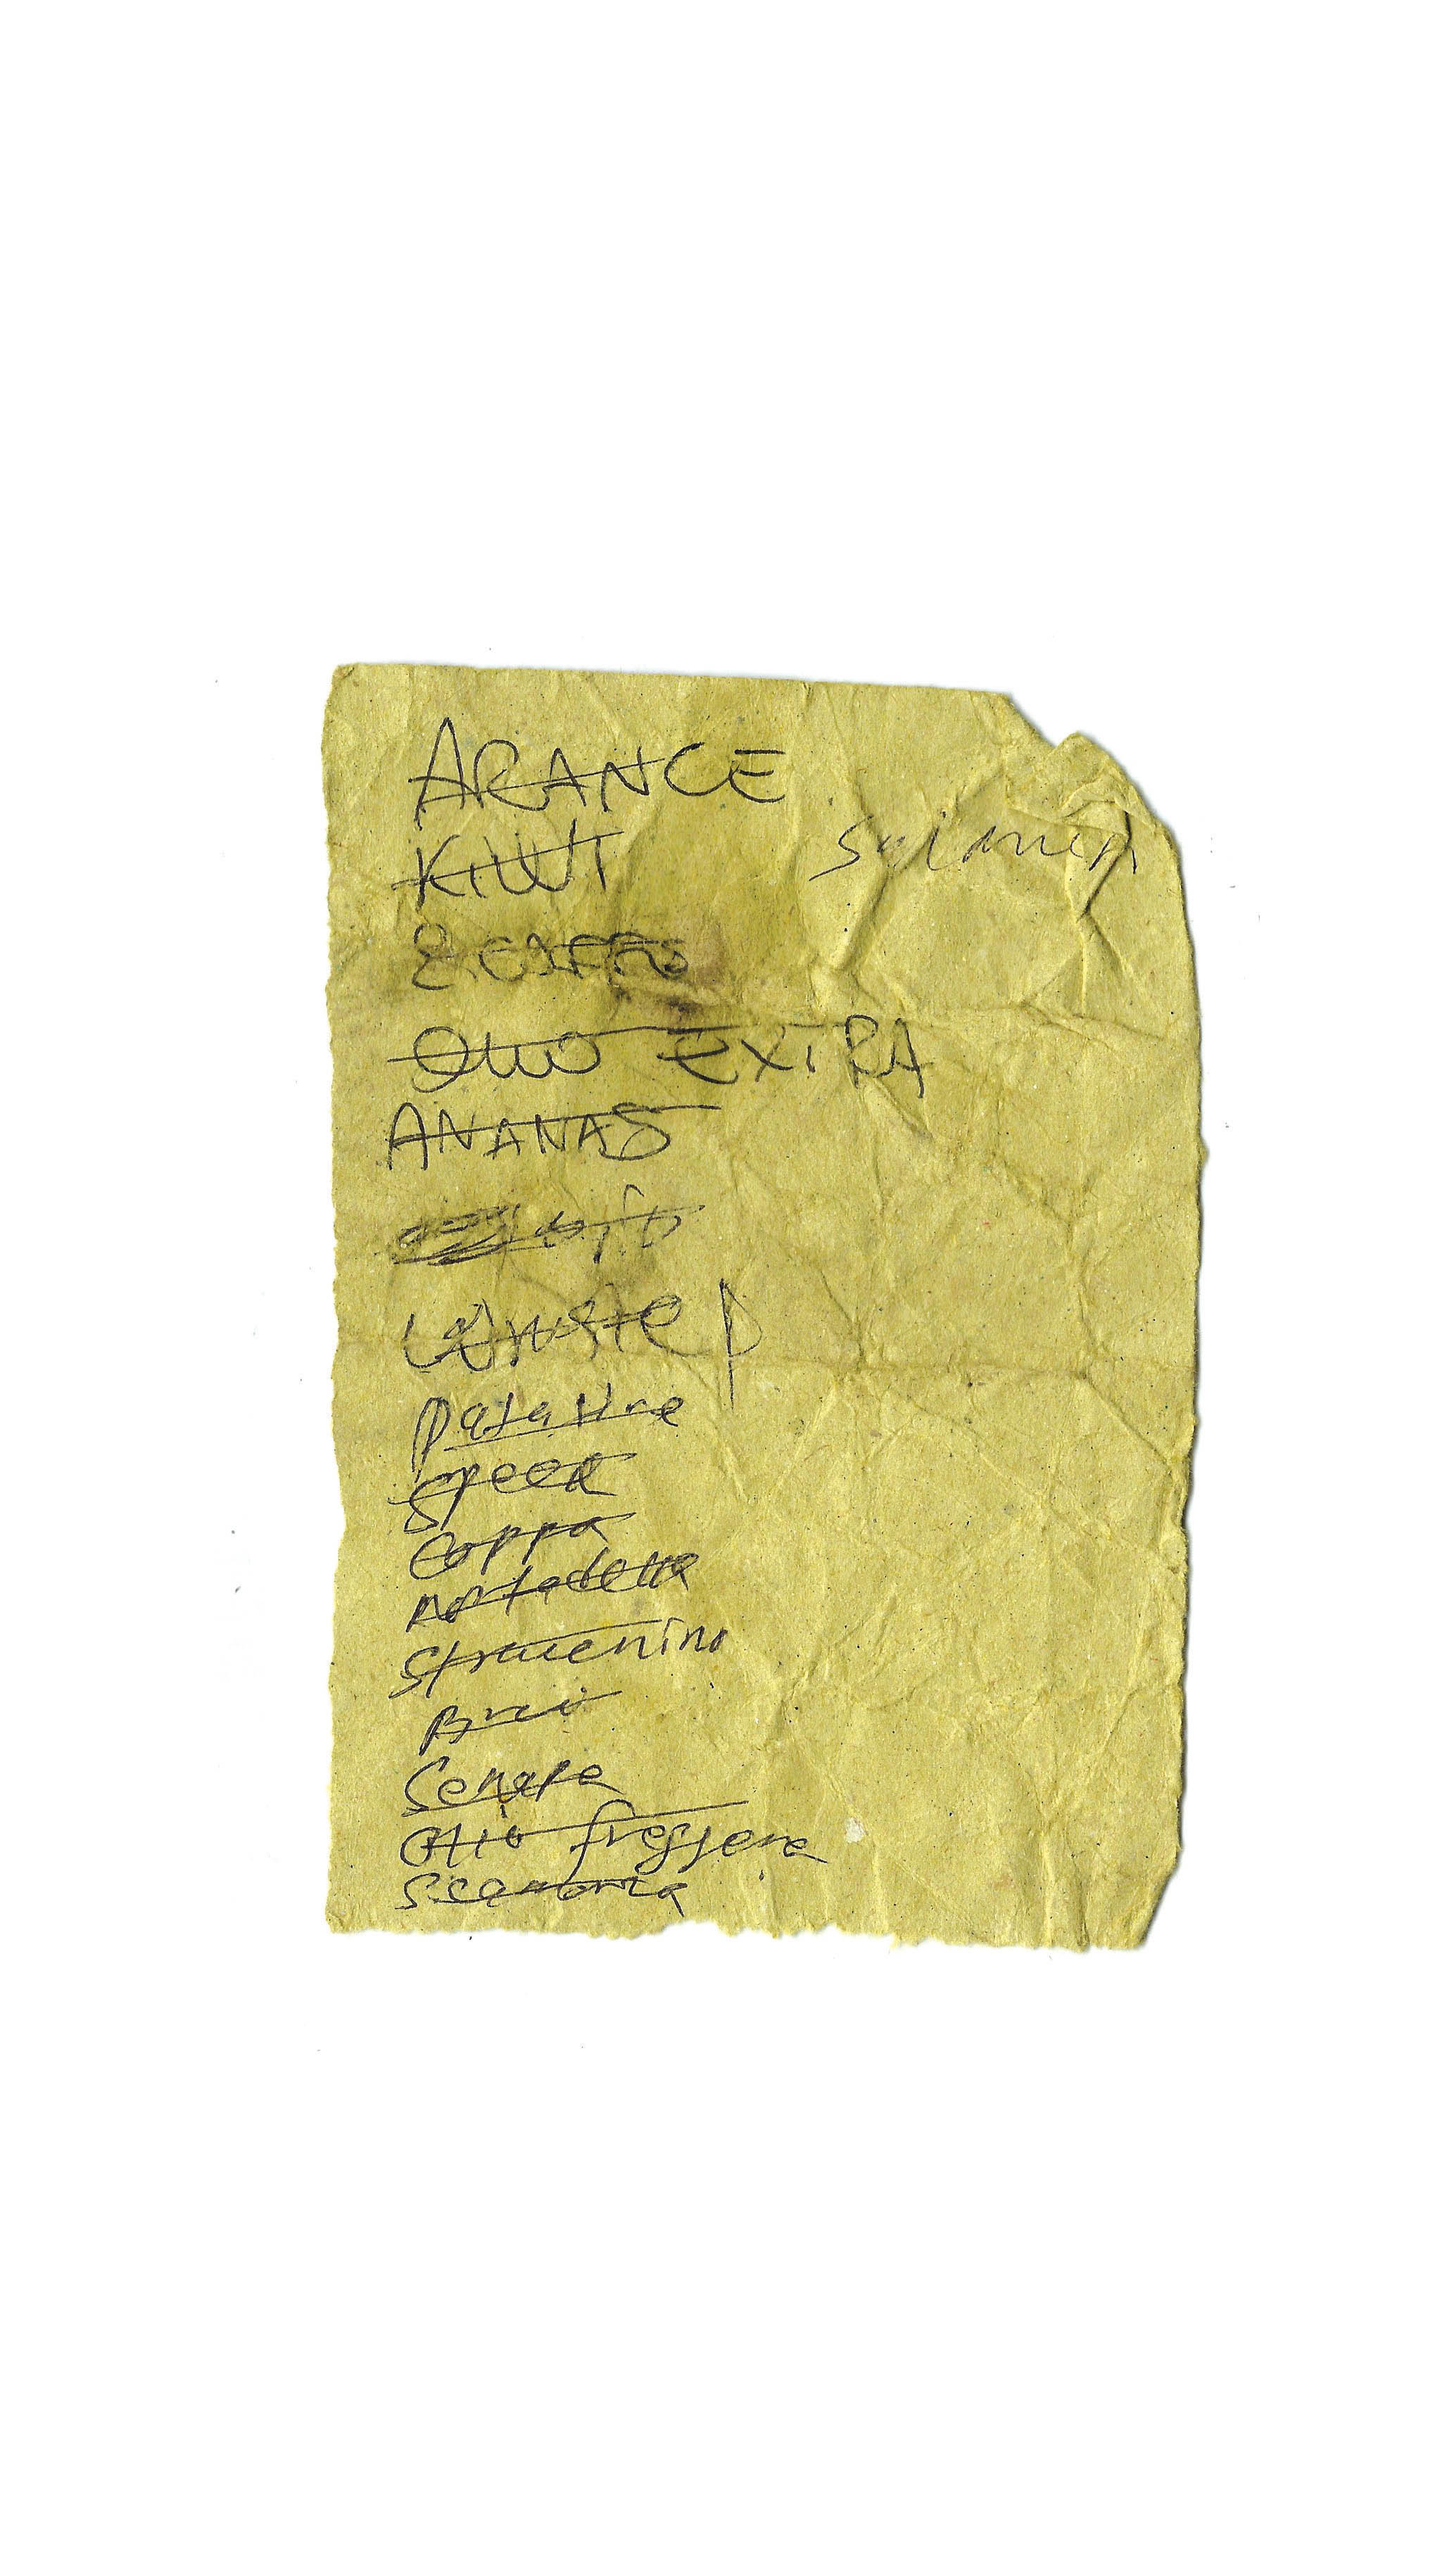 ARANCE
KIWI
salamen
2 CAFFÈ
OLIO EXTRA
ANANAS
patatine
speck
coppa
mortadella
stracchino
Senape
Olio friggere
scamorza